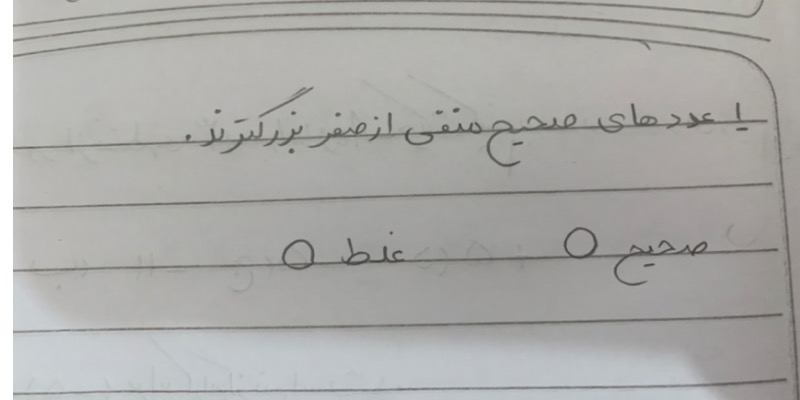 ۱ عددهای صحیح منفی از صفر بزرگترند.
صحیح ○ غلط ○